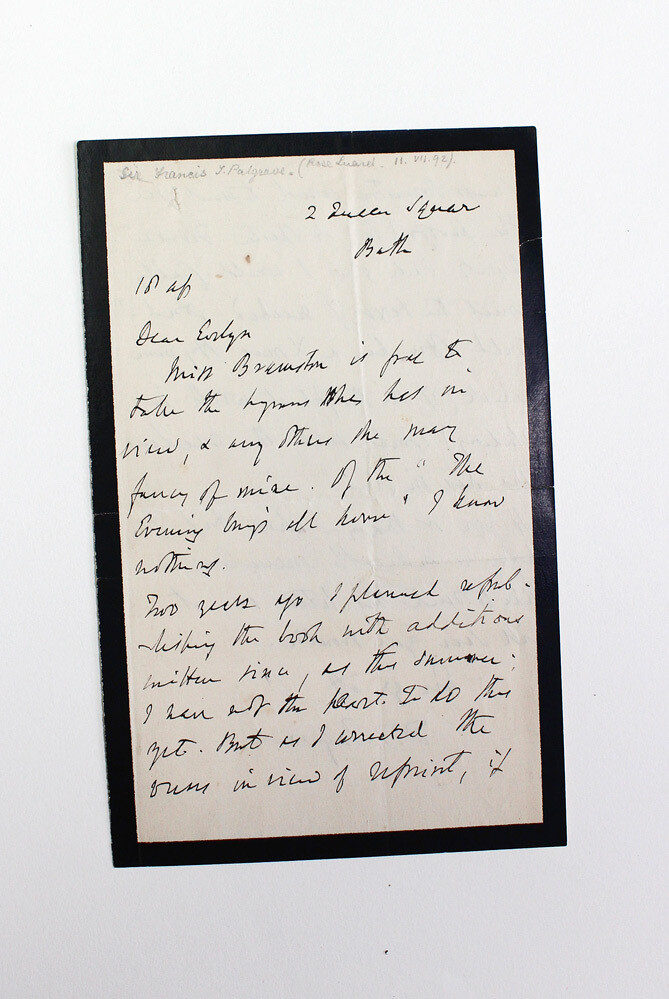 Sir Francis T. Palgrave. (Rose Luard. 11. VII. 92).
2 Queen Square
Bath
18 ap
Dear Evelyn
Miss Bramston is free to
take the hymns she has in
view, & any others she may
fancy of mine. Of the " The
Evening brings all home " I know
nothing.
Two years ago I planned repub-
-lishing the book with additions
written since, as this summer:
I have not the heart to do this
yet. But as I corrected the
verses in view of reprint, if